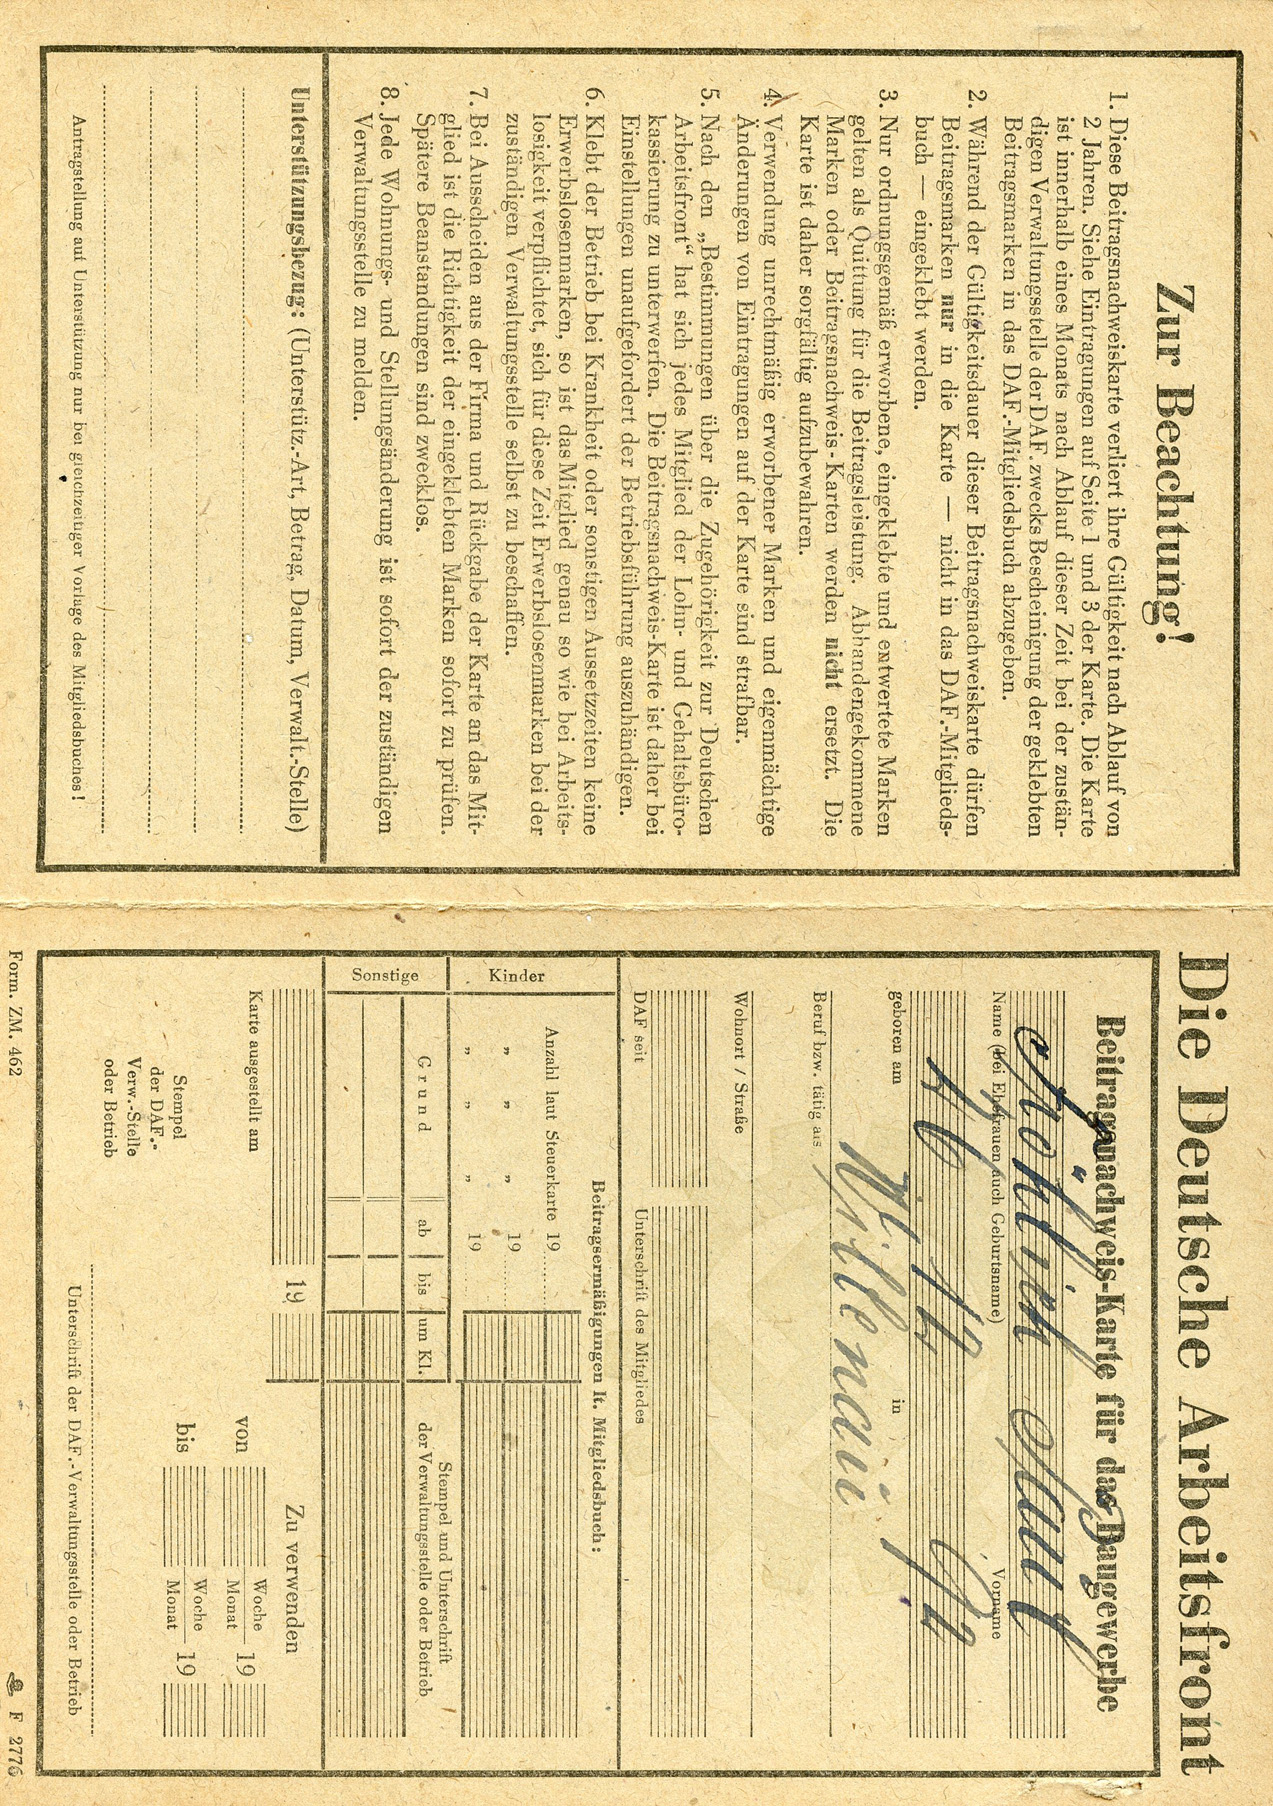 Zur Beachtung!
1. Diese Beitragsnachweiskarte verliert ihre Gültigkeit nach Ablauf von
2 Jahren. Siehe Eintragungen auf Seite 1 und 3 der Karte. Die Karte
ist innerhalb eines Monats nach Ablauf dieser Zeit bei der zustän-
digen Verwaltungsstelle der DAF. zwecks Bescheinigung der geklebten
Beitragsmarken in das DAF.-Mitgliedsbuch abzugeben.
2. Während der Gültigkeitsdauer dieser Beitragsnachweiskarte dürfen
Beitragsmarken nur in die Karte — nicht in das DAF.-Mitglieds-
buch — eingeklebt werden.
3. Nur ordnungsgemäß erworbene, eingeklebte und entwertete Marken
gelten als Quittung für die Beitragsleistung. Abhandengekommene
Marken oder Beitragsnachweis-Karten werden nicht ersetzt. Die
Karte ist daher sorgfältig aufzubewahren.
4. Verwendung unrechmäßig erworbener Marken und eigenmächtige
Änderungen von Eintragungen auf der Karte sind strafbar.
5. Nach den „Bestimmungen über die Zugehörigkeit zur Deutschen
Arbeitsfront“ hat sich jedes Mitglied der Lohn- und Gehaltsbüro-
kassierung zu unterwerfen. Die Beitragsnachweis-Karte ist daher bei
Einstellungen unaufgefordert der Betriebsführung auszuhändigen.
6. Klebt der Betrieb bei Krankheit oder sonstigen Aussetzzeiten keine
Erwerbslosenmarken, so ist das Mitglied genau so wie bei Arbeits-
losigkeit verpflichtet, sich für diese Zeit Erwerbslosenmarken bei der
zuständigen Verwaltungsstelle selbst zu beschaffen.
7. Bei Ausscheiden aus der Firma und Rückgabe der Karte an das Mit-
glied ist die Richtigkeit der eingeklebten Marken sofort zu prüfen.
Spätere Beanstandungen sind zwecklos.
8. Jede Wohnungs- und Stellungsänderung ist sofort der zuständigen
Verwaltungsstelle zu melden.
Unterstützungsbezug: (Unterstütz.-Art, Betrag, Datum, Verwalt.-Stelle)
Antragstellung auf Unterstützung nur bei gleichzeitiger Vorlage des Mitgliedsbuches!
Die Deutsche Arbeitsfront
Beitragsnachweis-Karte für das Baugewerbe
Fröhlich Paul
Name (bei Ehefrauen auch Geburtsname) Vorname
geboren am 26 12 in
Beruf bzw. tätig als
Wohnort / Straße
DAF seit Unterschrift des Mitgliedes
Beitragsermäßigungen lt. Mitgliedsbuch:
Kinder
Anzahl laut Steuerkarte 19
„ „ „ 19
„ „ „ 19
Sonstige
Grund ab bis um Kl. Stempel und Unterschrift
der Verwaltungsstelle oder Betrieb
19
Karte ausgestellt am
Zu verwenden
von Woche Monat 19
bis Woche Monat 19
Stempel
der DAF.-
Verw.-Stelle
oder Betrieb
Unterschrift der DAF.-Verwaltungsstelle oder Betrieb
Form. ZM. 462 F 2776